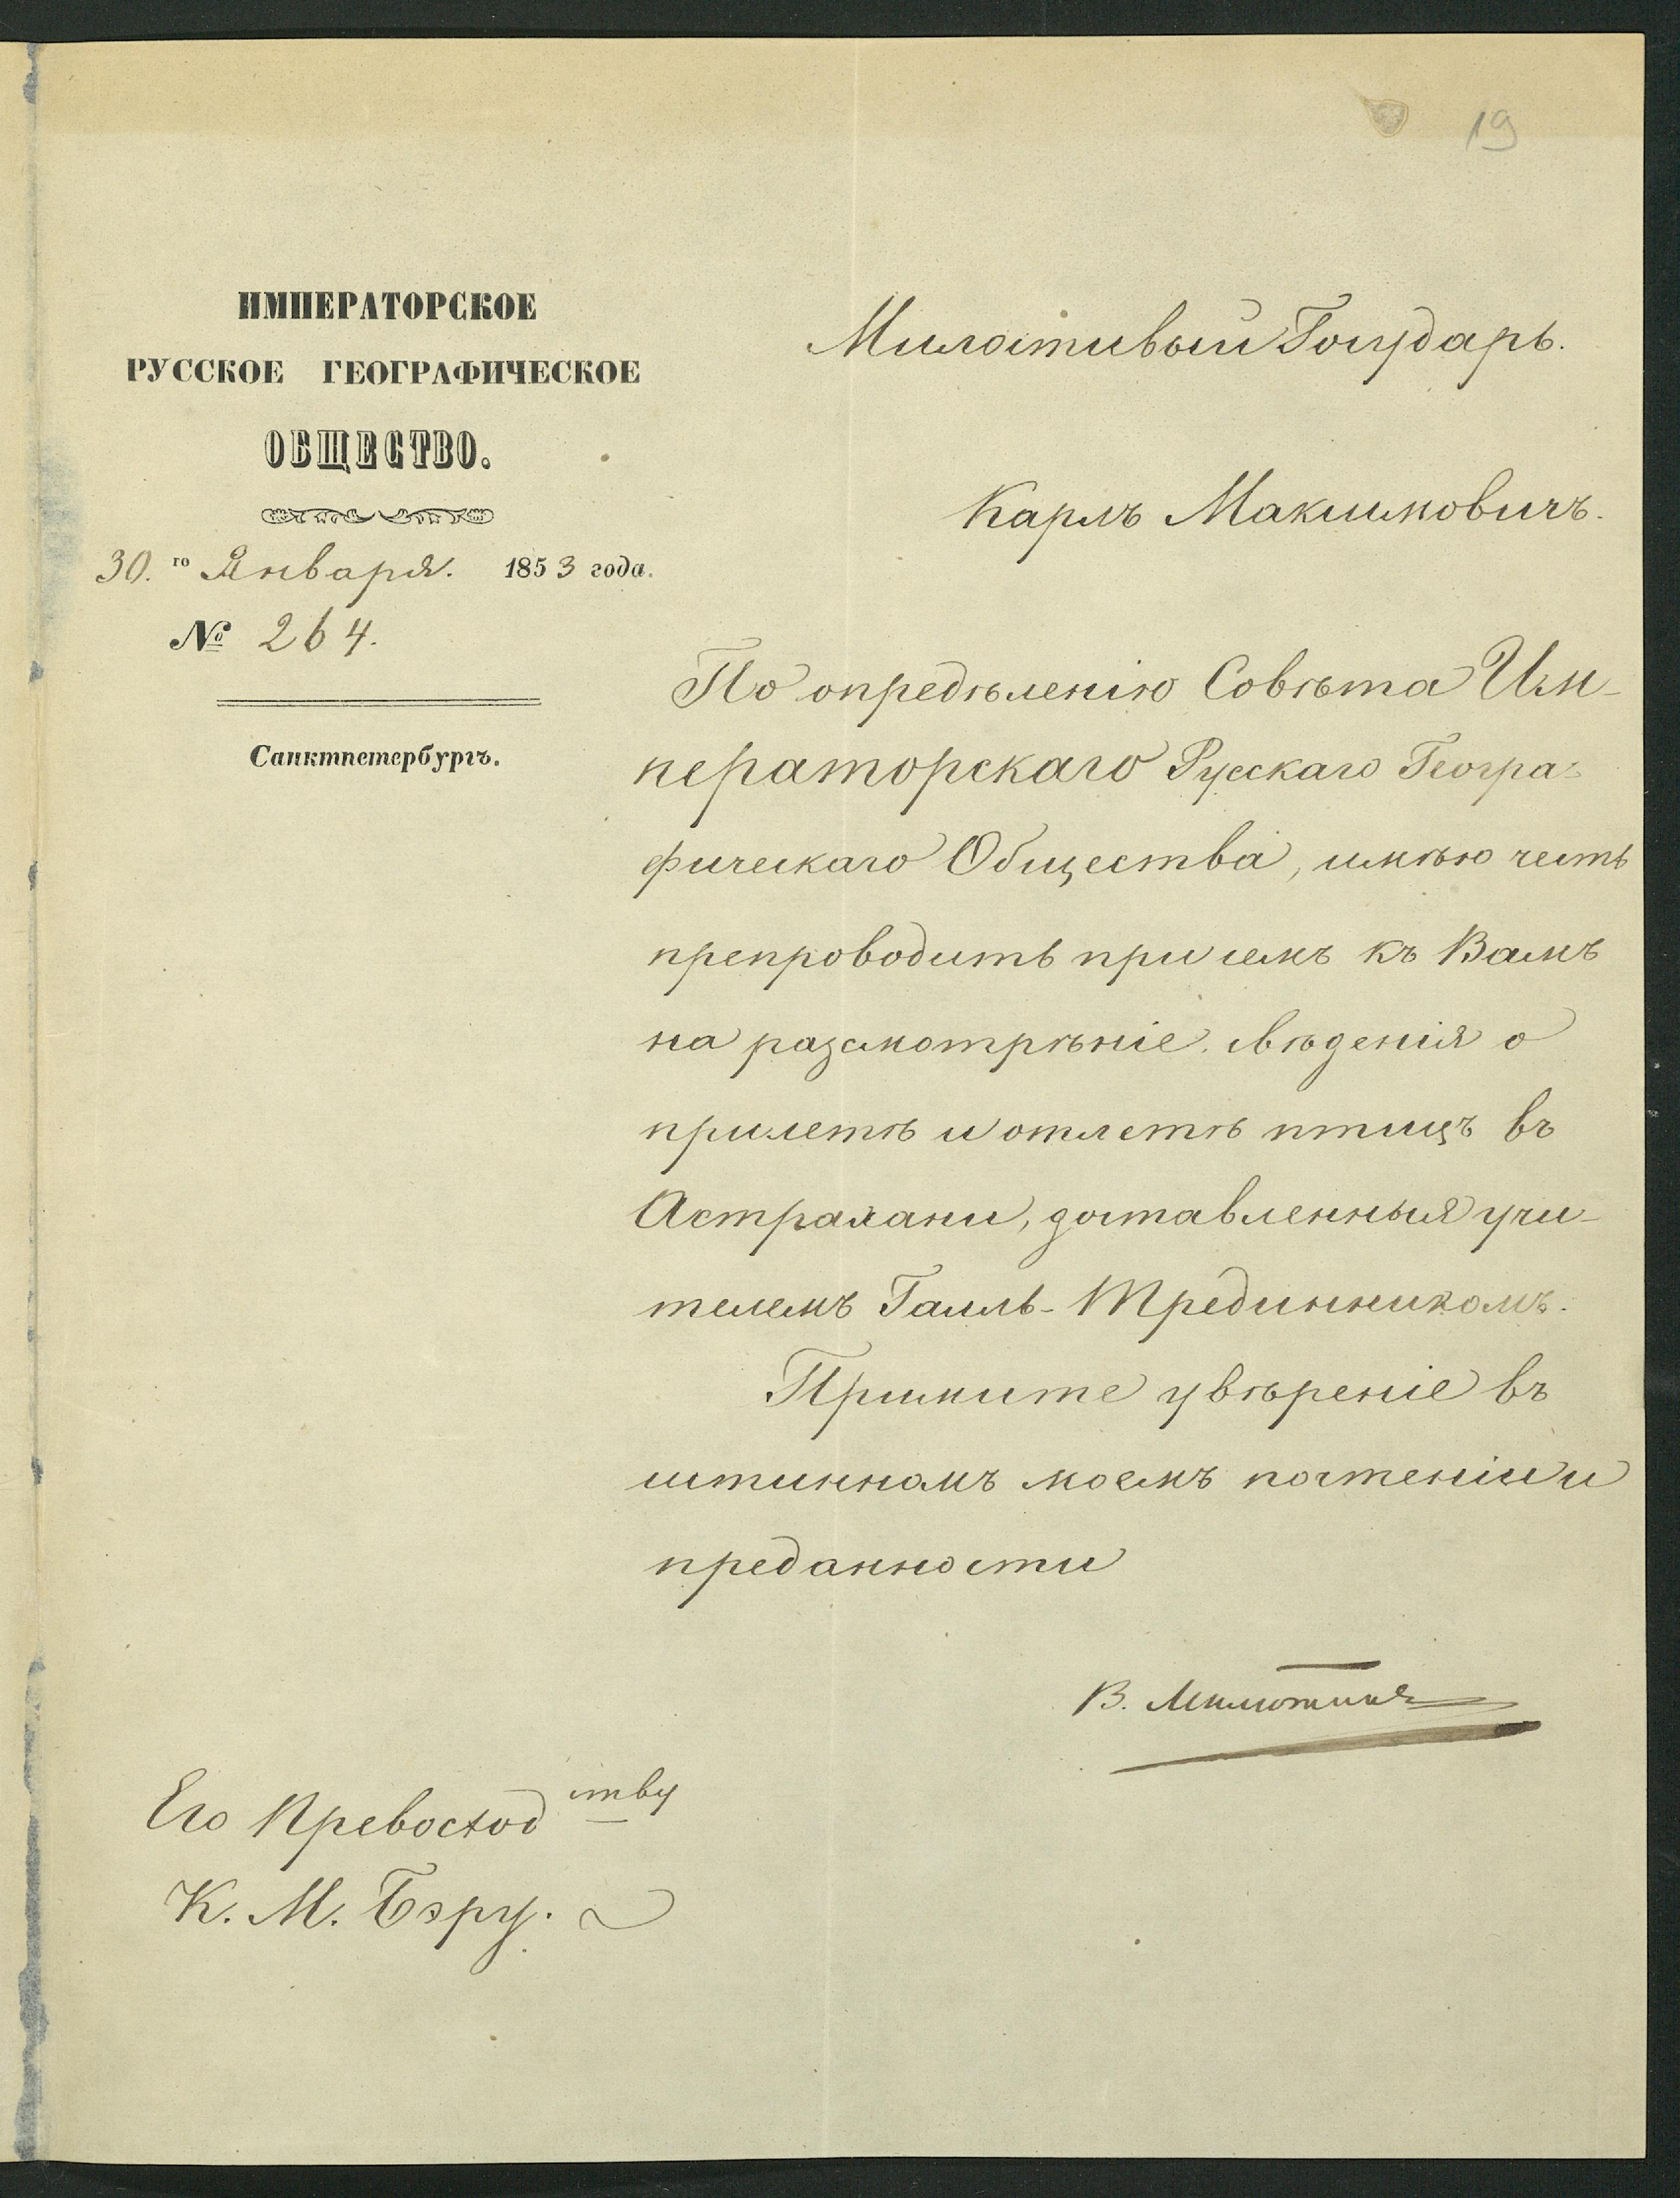 19
ИМПЕРАТОРСКОЕ
РУССКОЕ ГЕОГРАФИЧЕСКОЕ
ОБЩЕСТВО.
30.го Января. 1853 года.
№ 264.
Санктпетербургъ.
Милостивый Государь.
Карлъ Максимовичъ.
По опредѣленію Совѣта Им-
ператорскаго Русскаго Геогра-
фическаго Общества, имѣю честь
препроводить при семъ къ Вамъ
на разсмотрѣніе свѣденія о
прилетѣ и отлетѣ птицъ въ
Астрахани, доставленныя учи-
телемъ Гаиль-Трединникомъ.
Примите увѣреніе въ
истинномъ моемъ почтеніи и
преданности
В. Милютинъ
Его Превосходству
К. М. Бэру.